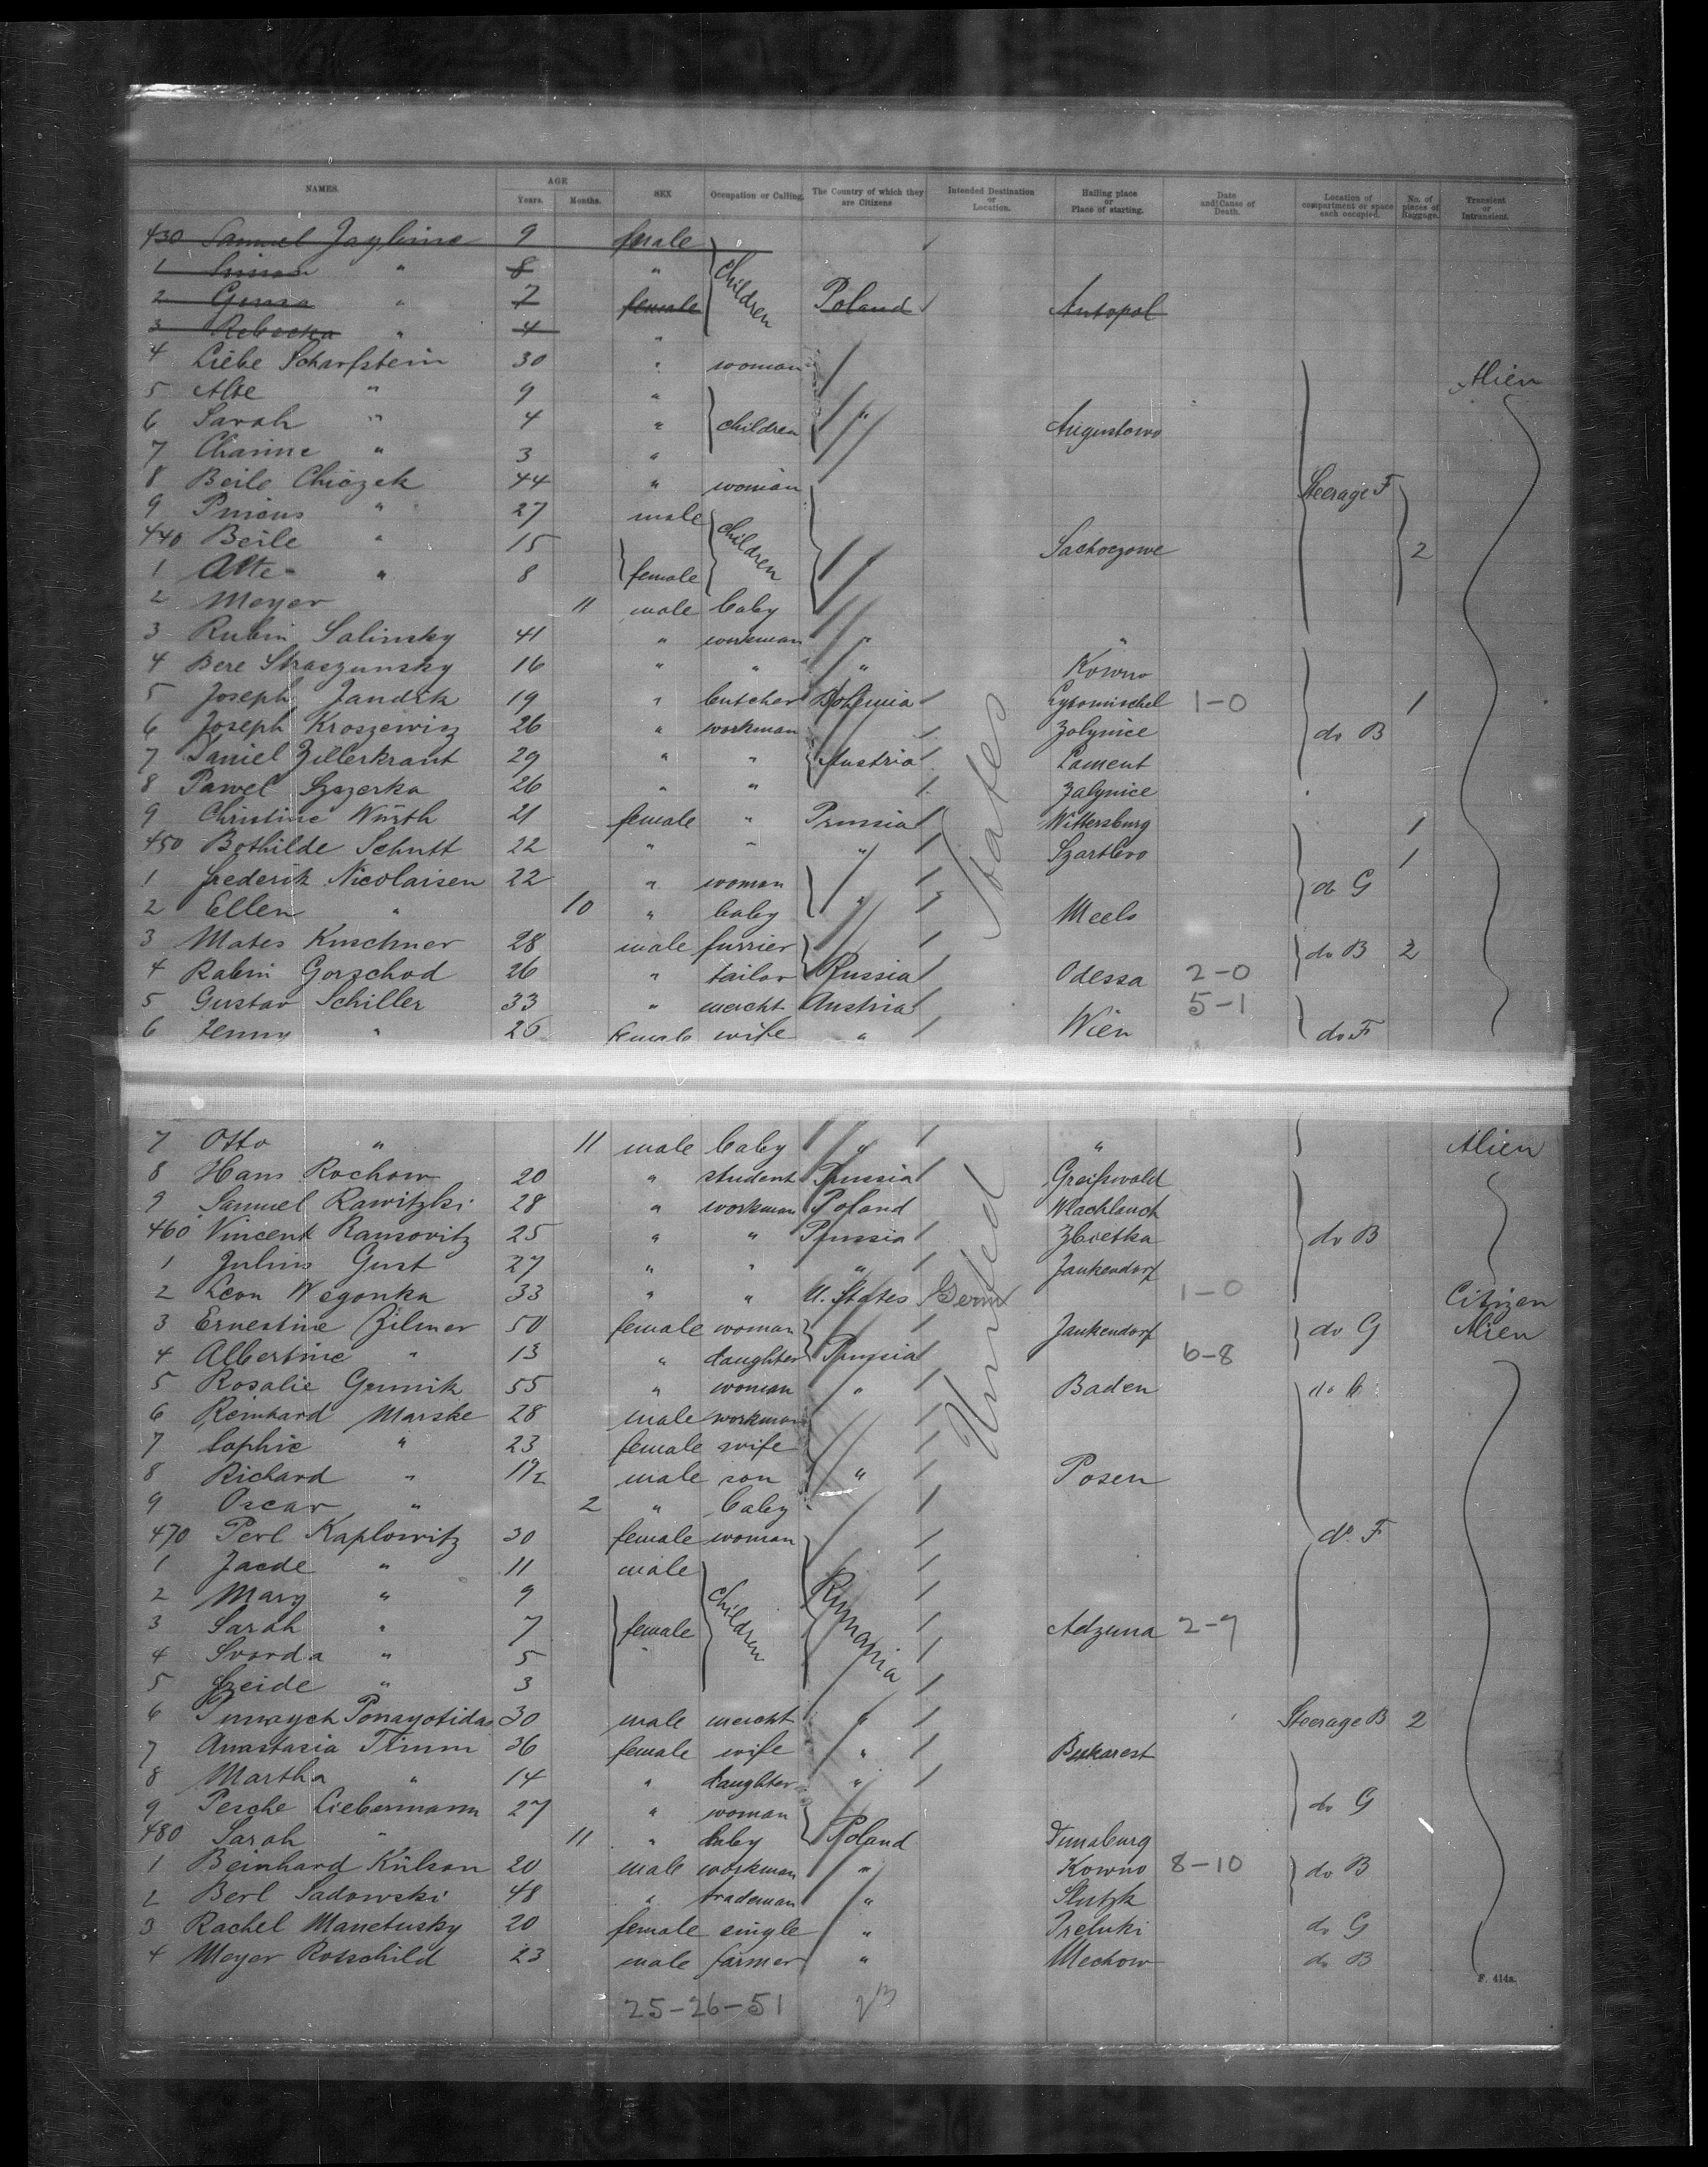 NAMES. AGE Years. Months. SEX Occupation or Calling. The Country of which they are Citizens Intended Destination or Location. Hailing place or Place of starting. Date and Cause of Death. Location of compartment or space each occupied. No. of pieces of Baggage. Transient or Intransient.
430 Samuel 9 female
1 " 8 " children
2 " 7 female Poland Antopol
3 Rebecka " 4 "
4 Liebe Scharfstein 30 " woman Alien
5 Alte " 9 "
6 Sarah " 4 " children " Augustowo
7 " 3 "
8 Beile 44 " woman Steerage F
9 " 27 male children
440 Beile " 15 " 2
1 Alte " 8 female
2 Meyer 11 male baby
3 Rubin Salinsky 41 " workman " "
4 Bere Straszunsky 16 " " " Kowno
5 Joseph Jandik 19 " butcher Bohemia 1-0 1
6 Joseph Kroszewicz 26 " workman Zolynice do B
7 Daniel Zellerkraut 29 " " Austria Lament
8 Pawel 26 " " Zalynice
9 Christine Würth 21 female " Prussia Wittersburg 1
450 Bothilde Schutt 22 " " " 1
1 Frederik Nicolaisen 22 " woman do G
2 Ellen " 10 " baby " Meels
3 Mates Kuschner 28 male furrier do B 2
4 Rabin Gorschod 26 " tailor Russia Odessa 2-0
5 Gustav Schiller 33 " mercht Austria 5-1
6 Jenny " 26 female wife " Wien do F
States
7 Otto " 11 male baby " " Alien
8 Hans Rochow 20 " student Prussia Greifswald
9 Samuel Rawitzki 28 " workman Poland
460 Vincent Ransovitz 25 " " Prussia Zbietka do B
1 Julius Gust 27 " " " Jankendorf
2 Leon Wegonka 33 " " U. States Germ 1-0 Citizen
3 Ernestine Zilmer 50 female woman Jankendorf do G Alien
4 Albertine " 13 " daughter Prussia 6-8
5 Rosalie 55 " woman " Baden do
6 Reinhard Marske 28 male workman
7 Sophie " 23 female wife
8 Richard " 1½ male son " Posen
9 Oscar " 2 " baby
United
470 Perl Kaplowitz 30 female woman do F
1 Jacde " 11 male
2 Mary " 9 children Rumania
3 Sarah " 7 female Adzuna 2-9
4 Svorda " 5 "
5 " 3
6 Panayotidas 30 male mercht " Steerage B 2
7 Anastasia Timm 36 female wife " Bukarest
8 Martha " 14 " daughter "
9 Pesche Liebermann 27 " woman do G
480 Sarah " 11 " baby Poland Dunaburg
1 Beinhard Külson 20 male workman " Kowno 8-10 do B
2 Berl Sadowski 48 " trademan " Slutzk
3 Rachel Manetusky 20 female single " Preluki do G
4 Meyer Rotschild 23 male farmer " Mechow do B
F. 414a.
25-26-51